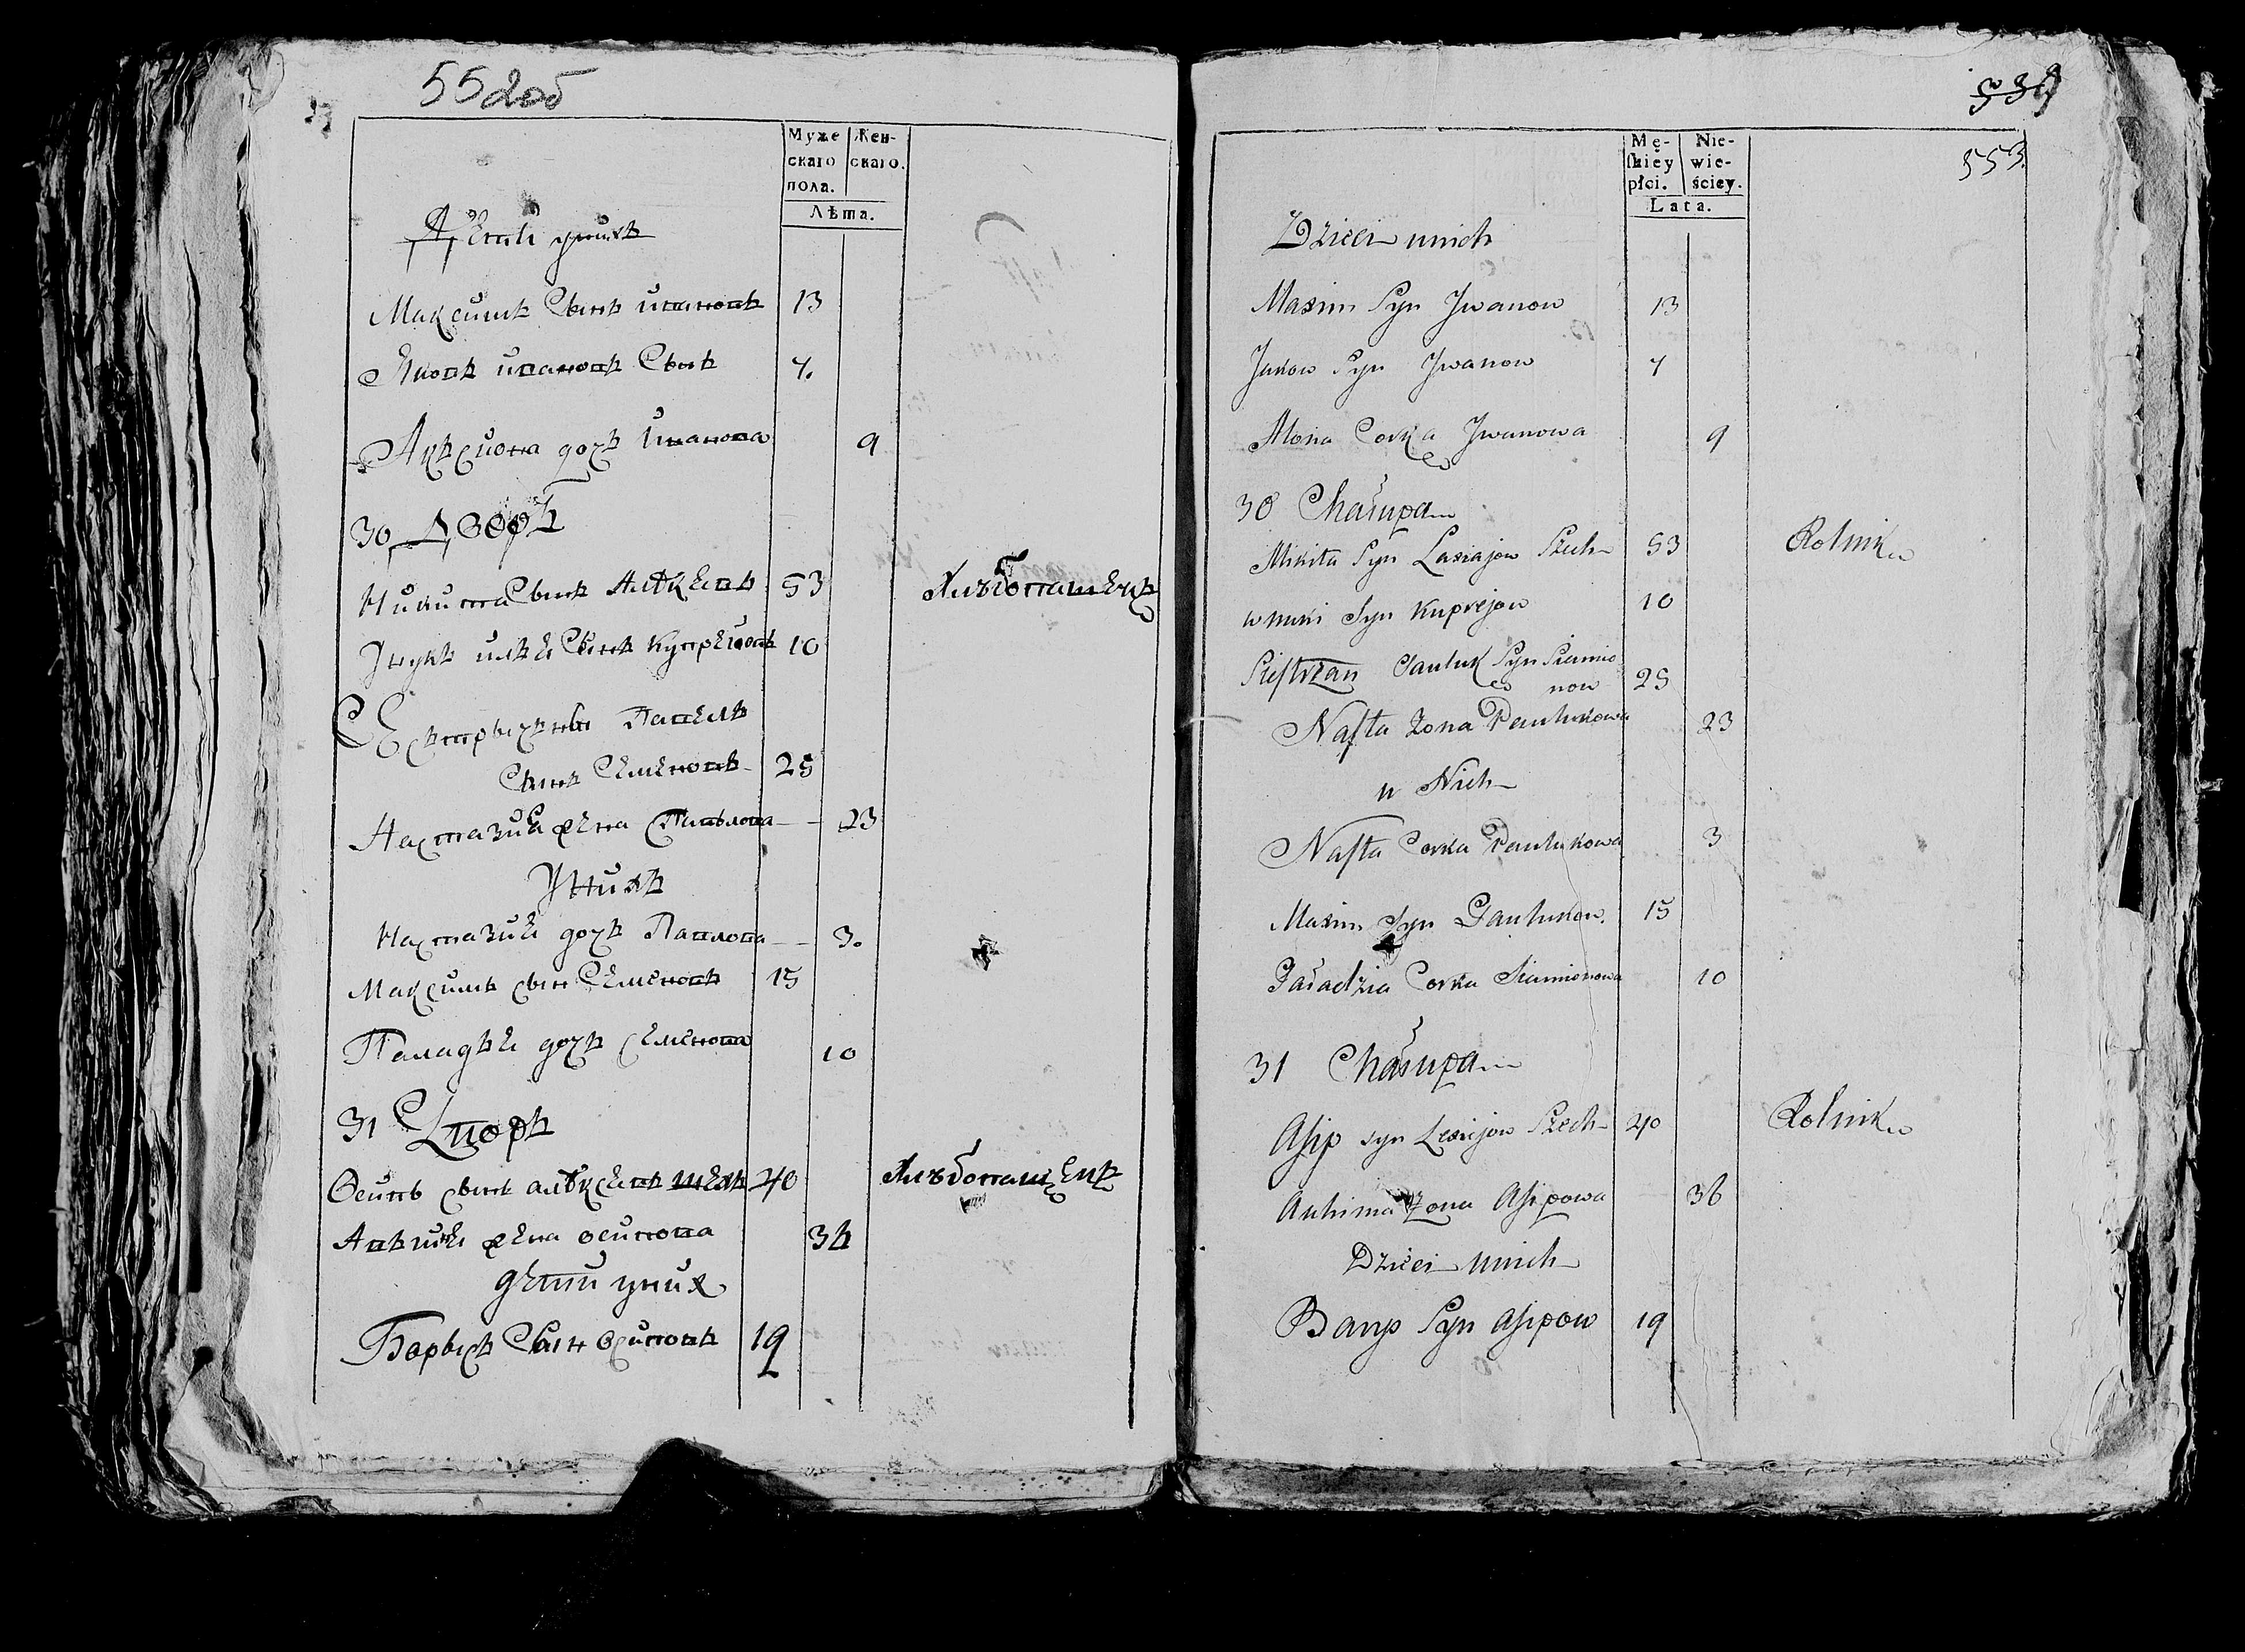 552об
Муже
скаго
пола.
Жен-
скаго.
Лѣта.
Дети уних
Максимъ Сынъ ивановъ 13
Яковъ ивановъ Сынъ 7.
дочъ Иванова 9
30 Дворъ
Никита Сынъ 53 Хлѣбопашецъ
Унукъ Сынъ Купреиовъ 10
Павелъ
Сынъ Семеновъ 25
Настазиа жена Павлова 23
Унихъ
Настазиа дочъ Павлова 3.
Максимъ сын Семеновъ 15
дочъ Семенова 10
31 Дворъ
Осипъ сынъ шехъ 40 Хлѣбопашецъ
жена осипова 36
дети уних
Борысъ Сын осиповъ 19
539
553.
Mę-
skiéy
płci.
Nie-
wie-
ściey.
Lata.
Dzieci unich
Maxim Syn Jwanow 13
Jakow Syn Jwanow 7
Alona Corka Jwanowa 9
30 Chałupa
Mikita Syn Laxiajow Szech 53 Rolnik
wnuki Syn Kuprejow 10
Siestrzan Pauluk Syn Siamio
now 25
Nasta Zona Paulukowa 23
u Nich
Nasta Corka Paulukowa 3
Maxim Syn Paulukow. 15
Paładzia Corka Siamionowa 10
31 Chałupa
Asip syn Lexiejow Szech 40 Rolnik
Auhinia Zona Asipowa 36
Dzieci unich
Barys Syn Asipow 19